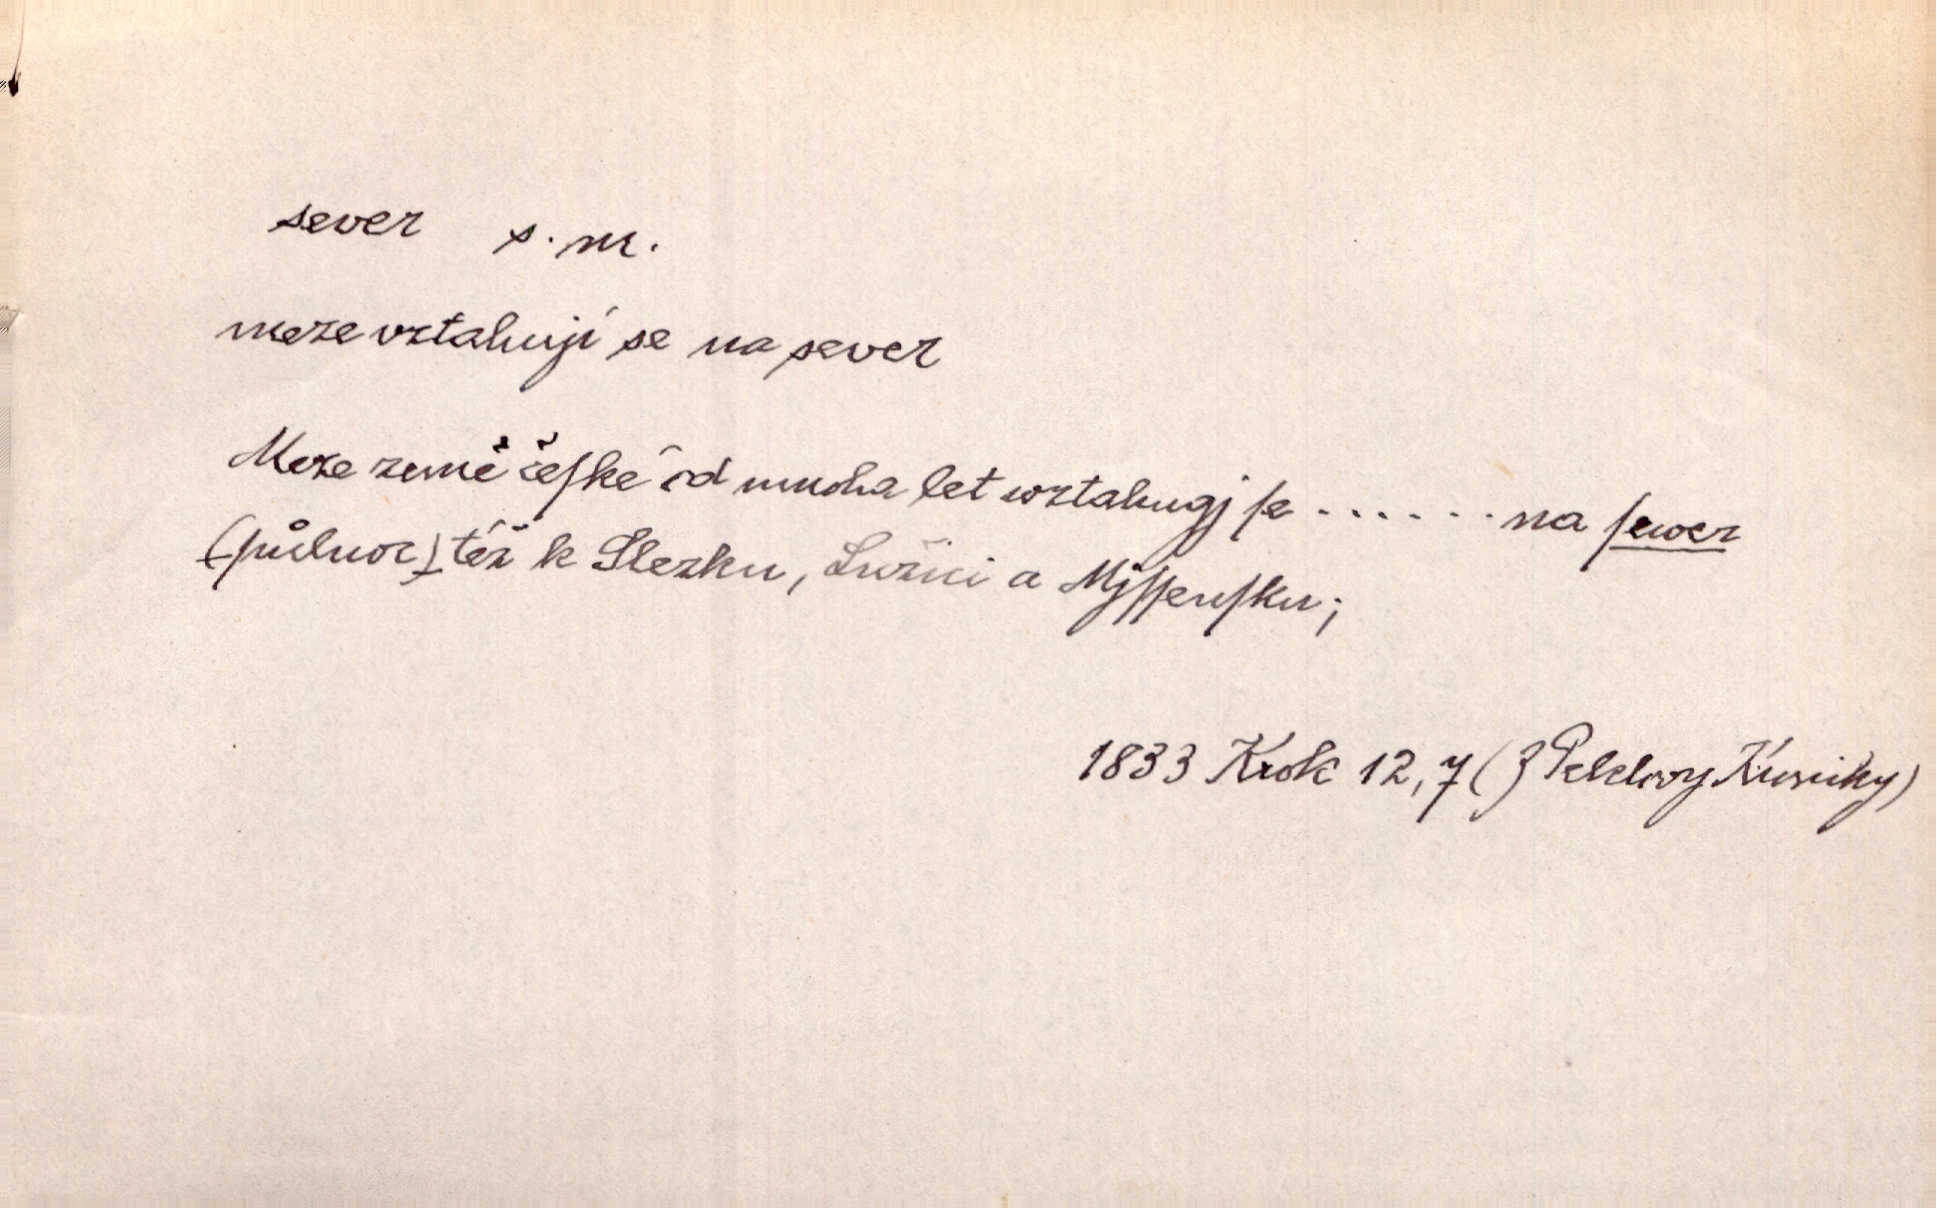 sever s. m.
meze vztahují se na sever
Meze země čeſké od mnoha let wztahugj ſe ....... na ſewer
(půlnoc) též k Slezku, Lužici a Mjſſenſku;
1833 Krok 12, 7 (Z